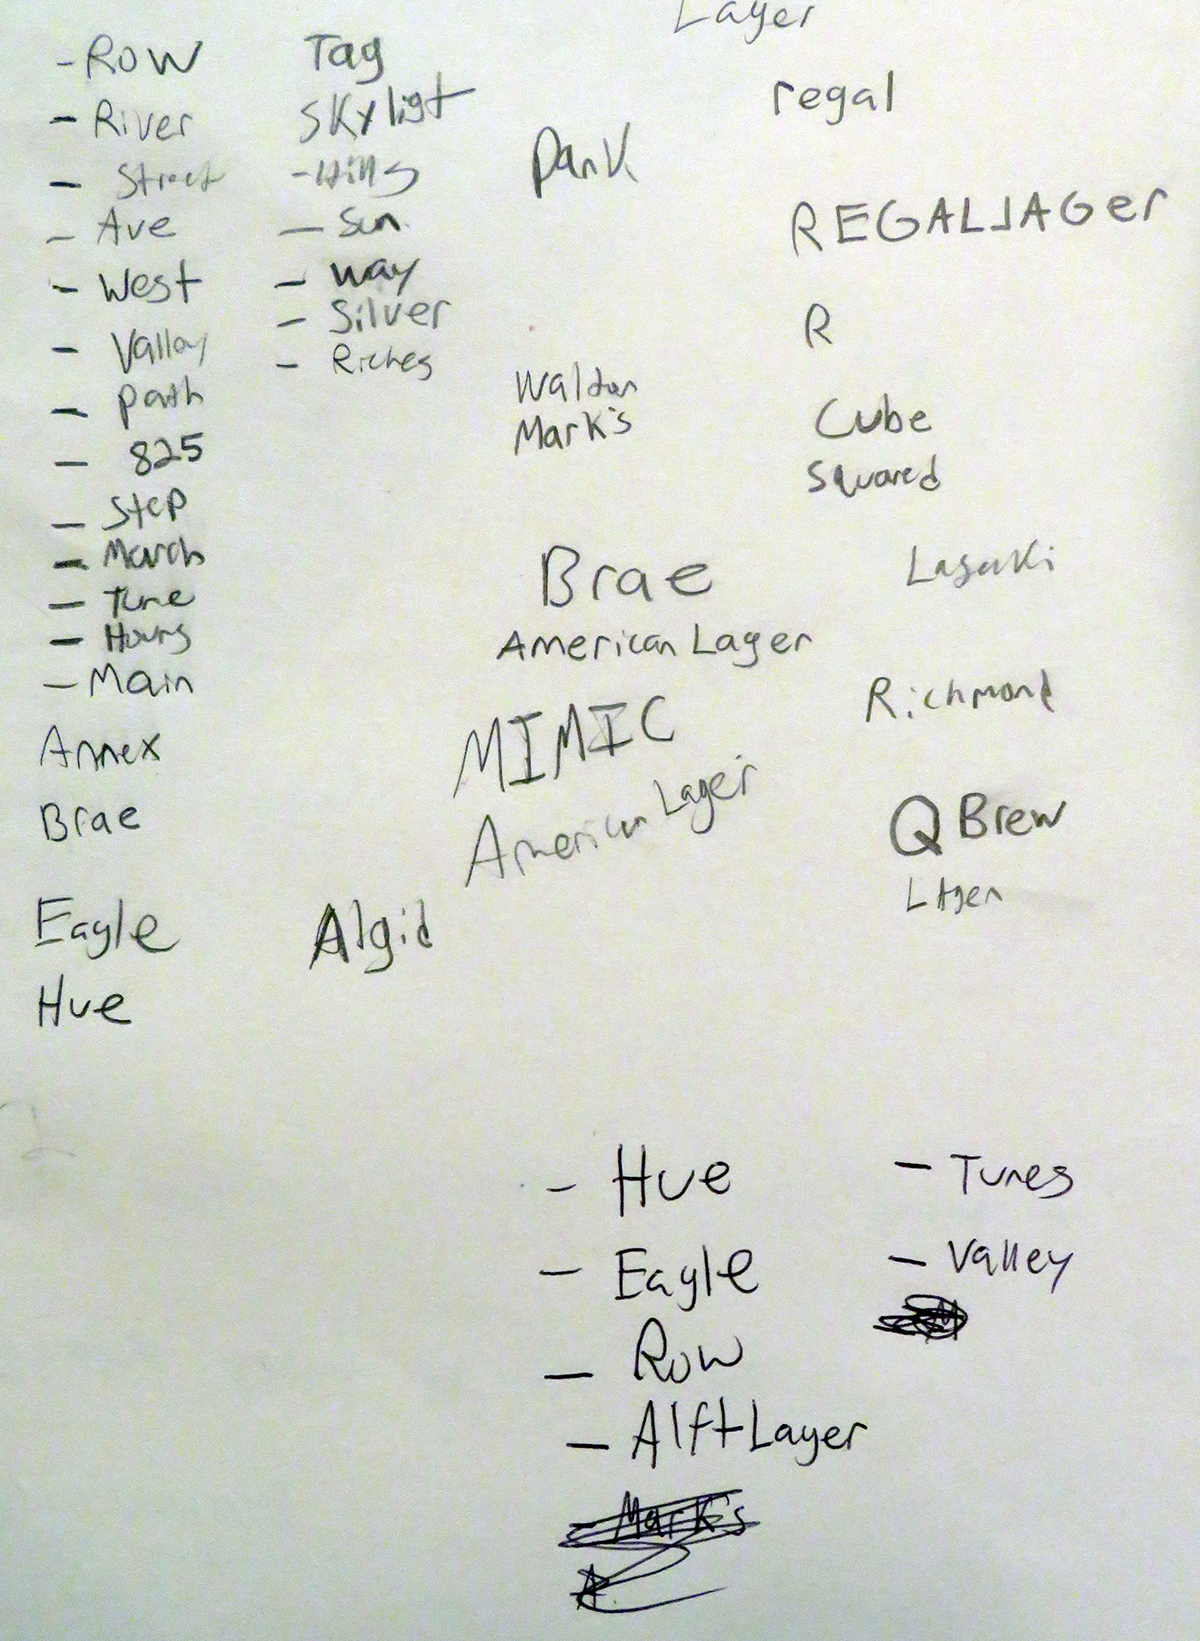 Lager
- Row
- River
- Street
- Ave
- West
- Valley
- path
- 825
- Step
- March
- Tune
- Hours
- Main
Annex
Brae
Eagle
Hue
Tag
Skyligt
- Hills
- Sun
- Way
- Silver
- Riches
Algid
Park
Walton
Mark's
Brae
American Lager
MIMIC
American Lager
regal
REGALLAGer
R
Cube
Squared
Richmond
Q Brew
Lager
- Hue
- Eagle
- Row
- Alft Layer
- Mark's
A
- Tunes
- Valley